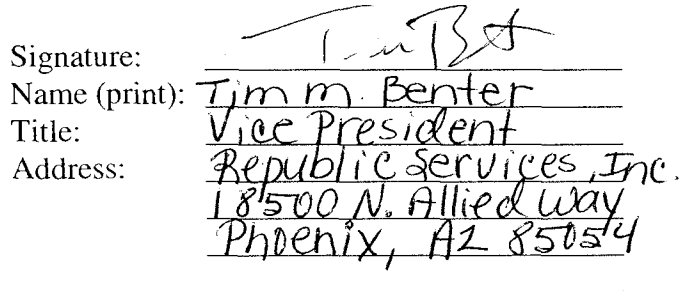 Signature: Tim Bet
Name (print): Tim M. Benter
Title: Vice President
Address: Republic Services, Inc.
18500 N. Allied Way
Phoenix, AZ 85054